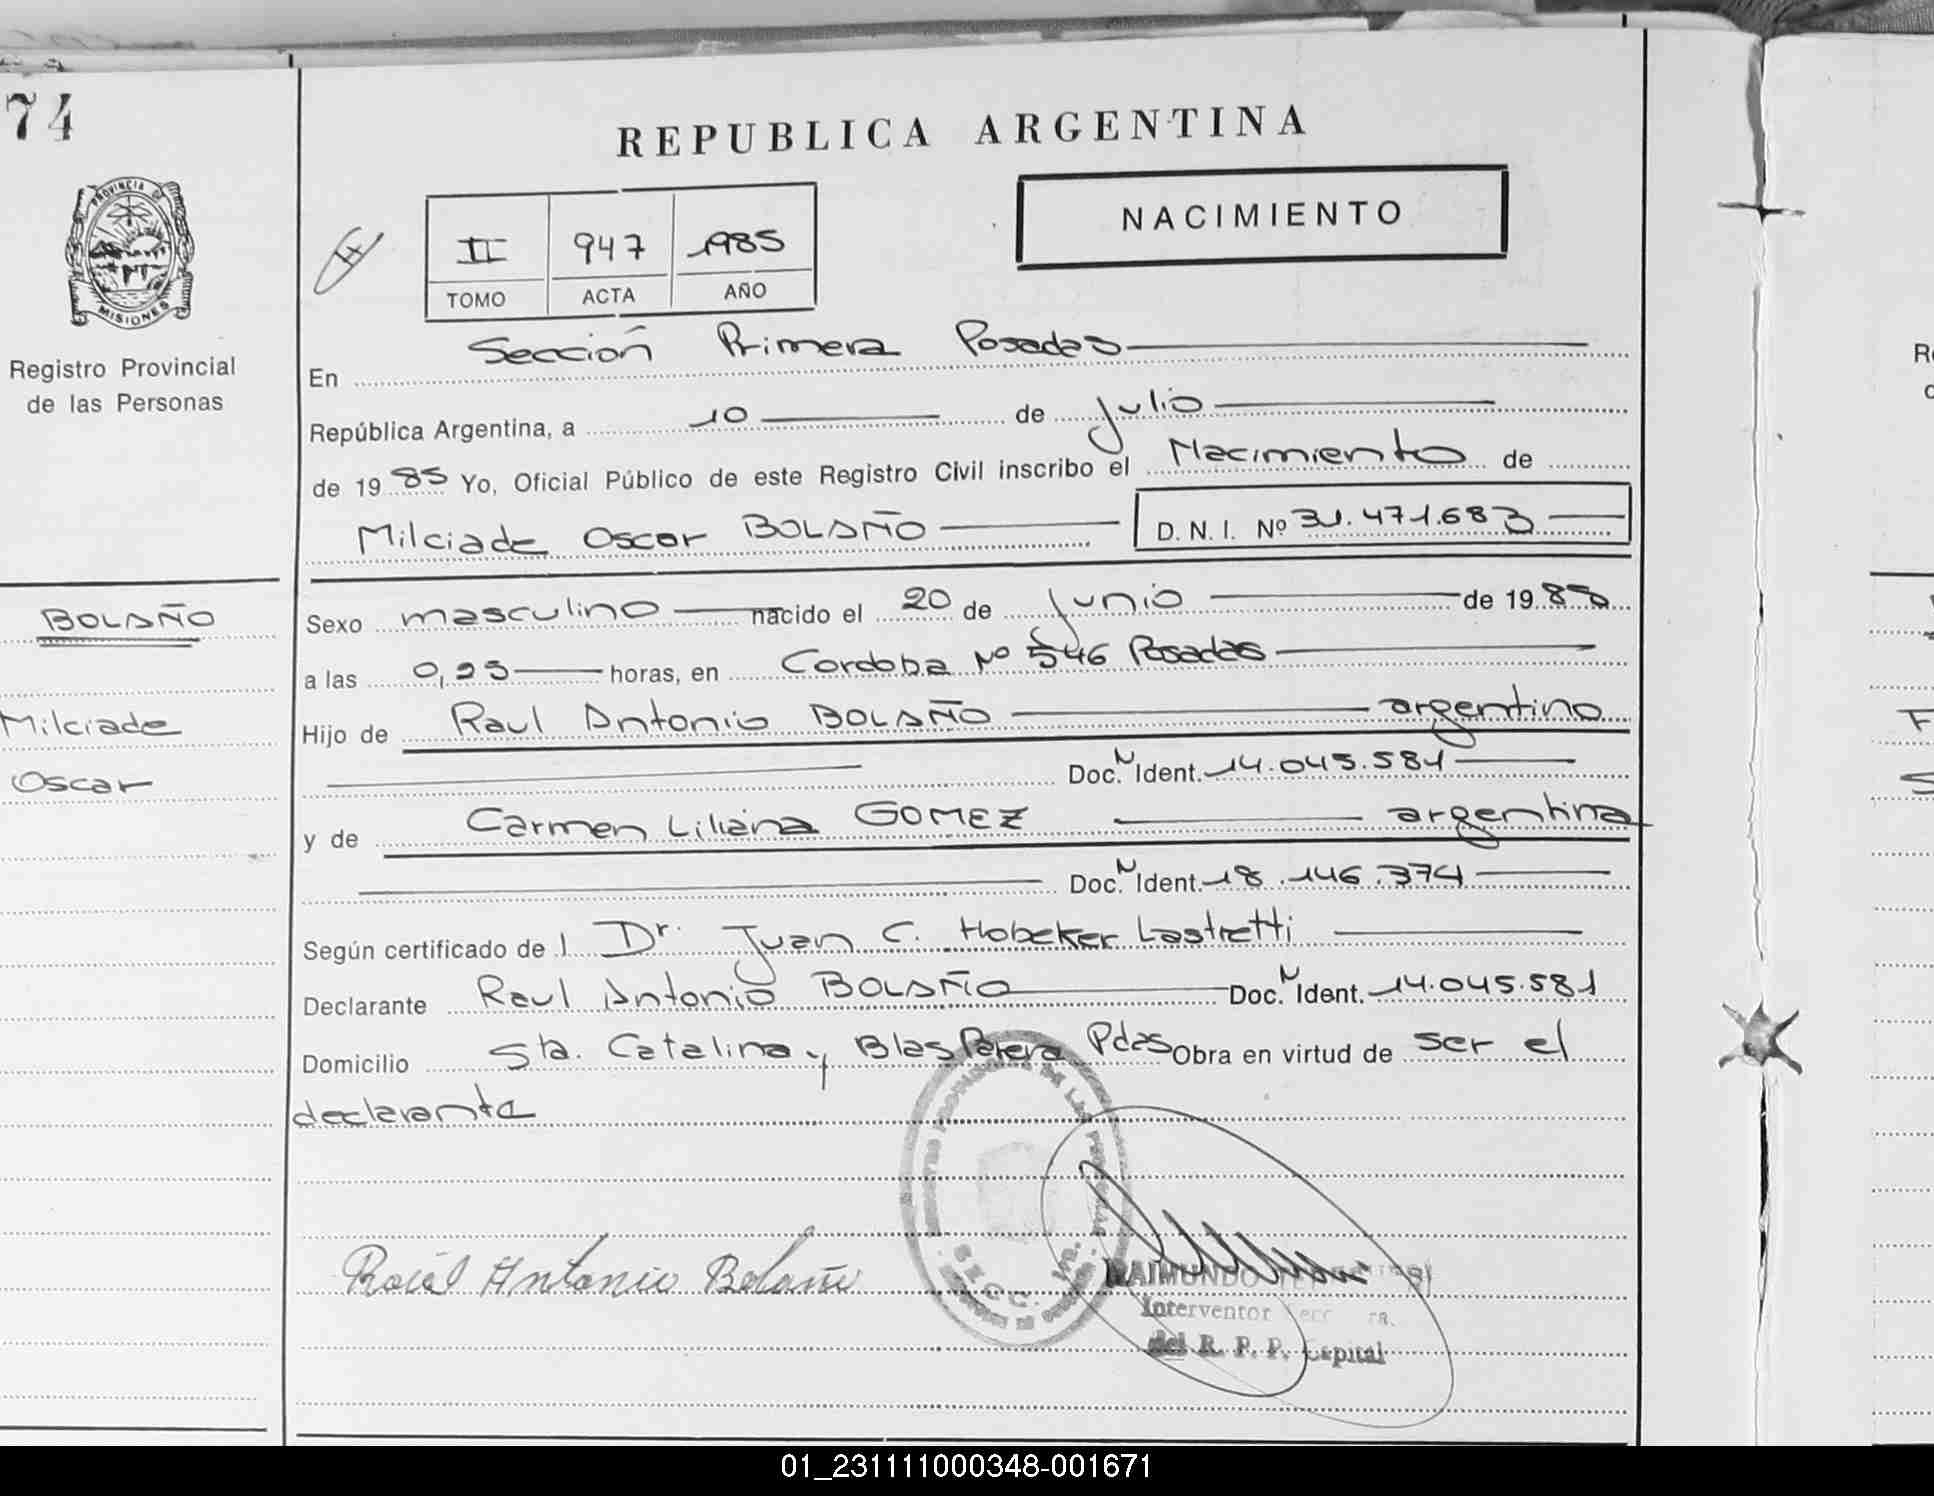 74
REPUBLICA ARGENTINA
NACIMIENTO
II 947 1985
TOMO ACTA AÑO
PROVINCIA DE
MISIONES
Registro Provincial
de las Personas
En Sección Primera Posadas
República Argentina, a 10 de Julio
de 1985 Yo, Oficial Público de este Registro Civil inscribo el Nacimiento de
Milciade Oscar BOLAÑO D. N. I. Nº 31.471.683
BOLAÑO
Sexo masculino nacido el 20 de Junio de 1985
a las 0,25 horas, en Cordoba Nº 546 Posadas
Milciade
Hijo de Raul Antonio BOLAÑO argentino
Oscar
Doc. N Ident. 14.045.581
y de Carmen Liliana GOMEZ argentina
Doc. N Ident. 18.146.374
Según certificado de l Dr. Juan C. Hobeker Lastretti
Declarante Raul Antonio BOLAÑO Doc. N Ident. 14.045.581
Domicilio Sta. Catalina y Blas Parera Pdas Obra en virtud de ser el
declarante
Raúl Antonio Bolaño
RAIMUNDO
Interventor Secc
del R. P. P. Capital
01_231111000348-001671